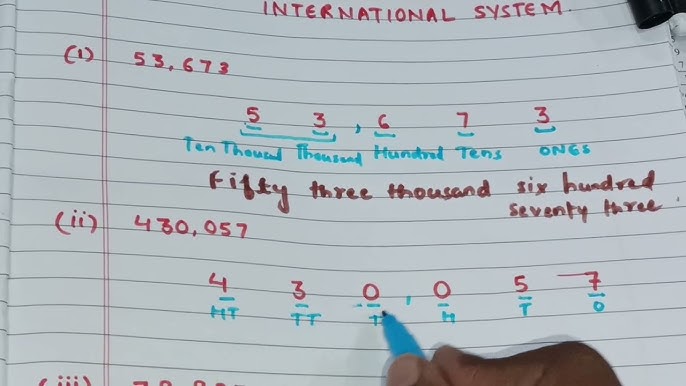 INTERNATIONAL SYSTEM.
(i) 53,673
5 3 , 6 7 3
Ten Thousand Thousand Hundred Tens ONES
Fifty three thousand six hundred
seventy three.
(ii) 430,057
4 3 0 , 0 5 7
HT TT T H T O
(iii)